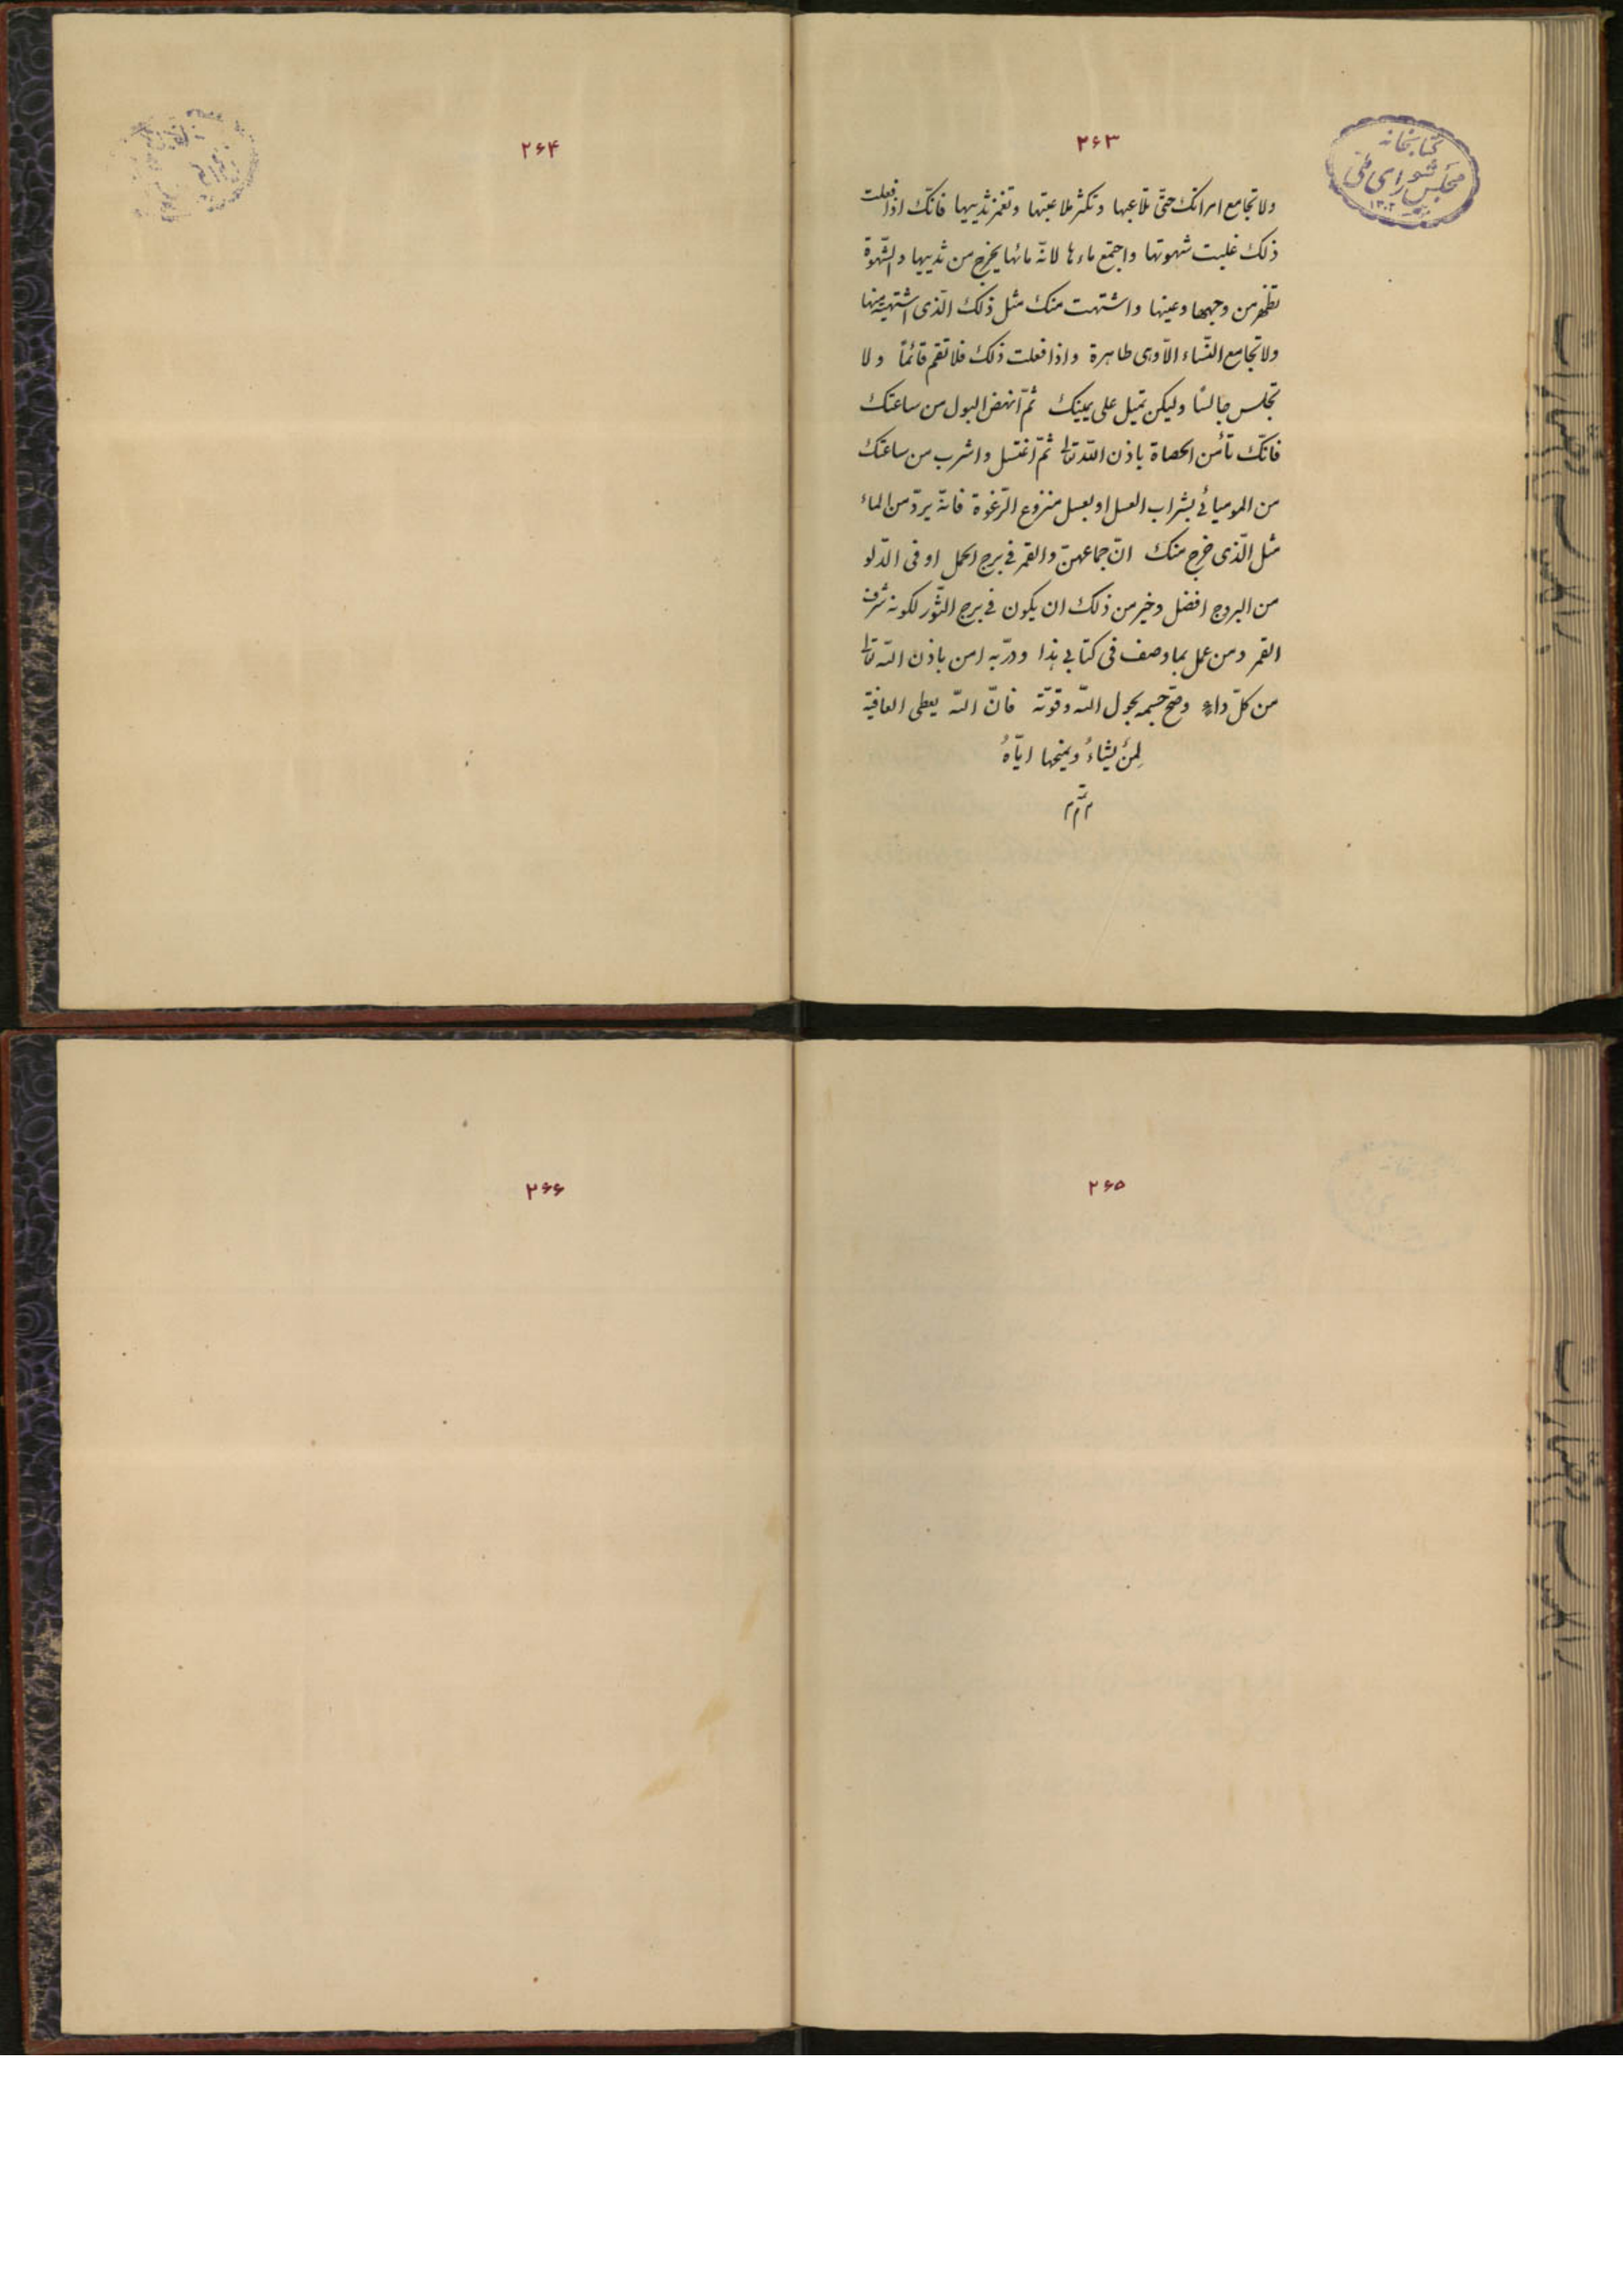 ۲۶۳
کتابخانه
مجلس شورای ملی
۱۳۰۲
ولا تجامع امراتک حتّی تلاعبها و تکثر ملاعبتها و تغمز ثدییها فانّک اذا فعلت
ذلک غلبت شهوتها و اجتمع ماءها لانّ مائها یخرج من ثدییها و الشّهوة
تظهر من وجهها و عینها و اشتهت منک مثل ذلک الّذی اشتهیته منها
ولا تجامع النّساء الّا وهی طاهرة و اذا فعلت ذلک فلا تقم قائمًا و لا
تجلس جالسًا ولیکن تمیل علی یمینک ثمّ انهض البول من ساعتک
فانّک تأمن الحصاة باذن اللّه تعالی ثمّ اغتسل و اشرب من ساعتک
من المومیائی بشراب العسل او بعسل منزوع الرّغوة فانّه یردّ من الماء
مثل الّذی خرج منک انّ جماعهنّ والقمر فی برج الحمل او فی الدّلو
من البروج افضل وخیر من ذلک ان یکون فی برج الثّور لکونه شرف
القمر ومن عمل بما وصف فی کتابی هذا ودرّبه امن باذن اللّه تعالی
من کلّ داء وصحّ جسمه بحول اللّه وقوّته فانّ اللّه یعطی العافیة
لِمَن یشاءُ ویمنحها ایّاهُ
۲۶۴
۲۶۵
۲۶۶